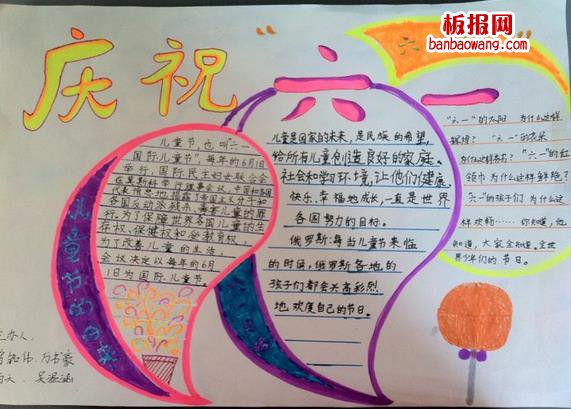 板报网
banbaowang.com
庆祝"六一"
儿童节的由来
儿童节,也叫六一
国际儿童节",每年的6月1日
举行,国际民主妇女联合会
在莫斯科举行理事会议,中国和各国
代表愤怒地揭露了帝国主义分子和
各国反动派残杀、毒害儿童的罪
行,为了保障世界各国儿童的生
存权、保健权和受教育权,
为了改善儿童的生活,
会议决定以每年的6月
1日为国际儿童节。
儿童是国家的未来,是民族的希望,
给所有儿童创造良好的家庭。
社会和学习环境,让他们健康、
快乐、幸福地成长,一直是世界
各国努力的目标。
俄罗斯:每当儿童节来临
的时候,俄罗斯各地的
孩子们都会兴高彩烈
地欢度自己的节日。
六一
"六一"的太阳 为什么这样
辉煌? "六一"的衣裳
为什么这样多彩? "六一"的红
领巾 为什么这样鲜艳?
六一"的孩子们 为什么这
样欢畅……你知道,他
知道,大家全知道,全世
界少年们的节日。
主办人: